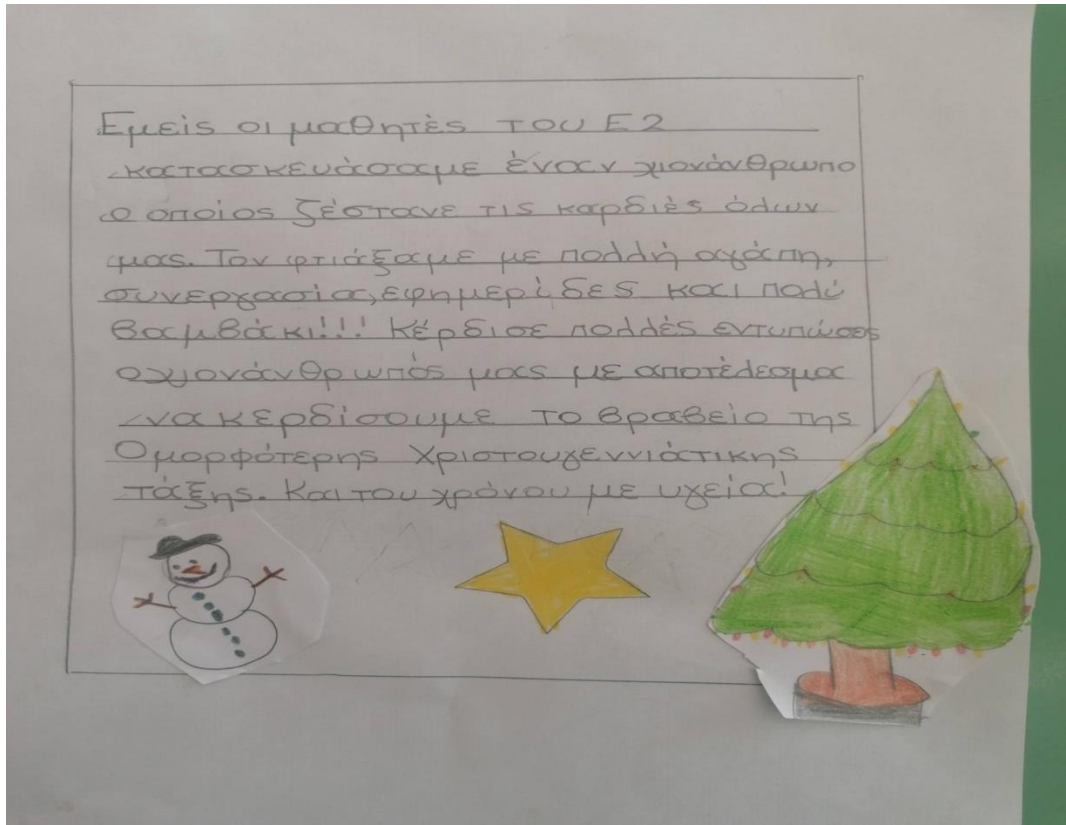 Εμείς οι μαθητές του Ε2
κατασκευάσαμε έναν χιονάνθρωπο
ο οποίος ζέστανε τις καρδιές όλων
μας. Τον φτιάξαμε με πολλή αγάπη,
συνεργασία, εφημερίδες και πολύ
βαμβάκι!!! Κέρδισε πολλές εντυπώσεις
ο χιονάνθρωπός μας με αποτέλεσμα
να κερδίσουμε το βραβείο της
Ομορφότερης Χριστουγεννιάτικης
τάξης. Και του χρόνου με υγεία!